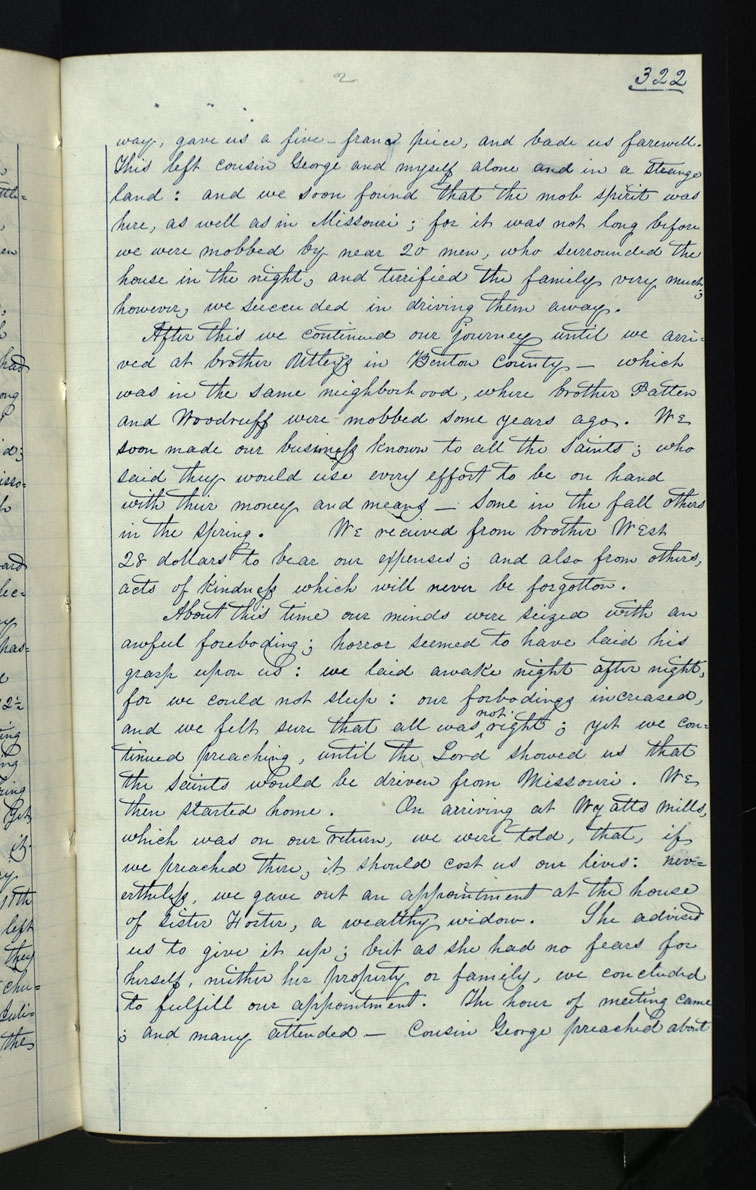 2
322
way, gave us a five-franc piece, and bade us farewell.
This left cousin George and myself alone and in a strange
land: and we soon found that the mob spirit was
here, as well as in Missouri; for it was not long before
we were mobbed by near 20 men, who surrounded the
house in the night, and terrified the family very much;
however, we succeeded in driving them away.
After this we continued our journey until we arri-
ved at brother Utley's in Benton County — which
was in the same neighborhood, where brother Patten
and Woodruff were mobbed some years ago. We
soon made our business known to all the saints; who
said they would use every effort to be on hand
with their money and means — some in the fall others
in the spring. We received from brother West
28 dollars to bear our expenses; and also from others,
acts of kindness which will never be forgotton.
About this time our minds were seized with an
awful foreboding; horror seemed to have laid his
grasp upon us: we laid awake night after night,
for we could not sleep: our forbodings increased,
and we felt sure that all was not right; yet we con=
tinued preaching, until the Lord showed us that
the saints would be driven from Missouri. We
then started home. On arriving at Wyatts mills,
which was on our return, we were told, that, if
we preached there, it should cost us our lives: nev=
ertheless, we gave out an appointment at the house
of Sister Foster, a wealthy widow. She advised
us to give it up; but as she had no fears for
herself, neither her property or family, we concluded
to fulfill our appointment. The hour of meeting came
; and many attended — Cousin George preached about
had
left
they
the